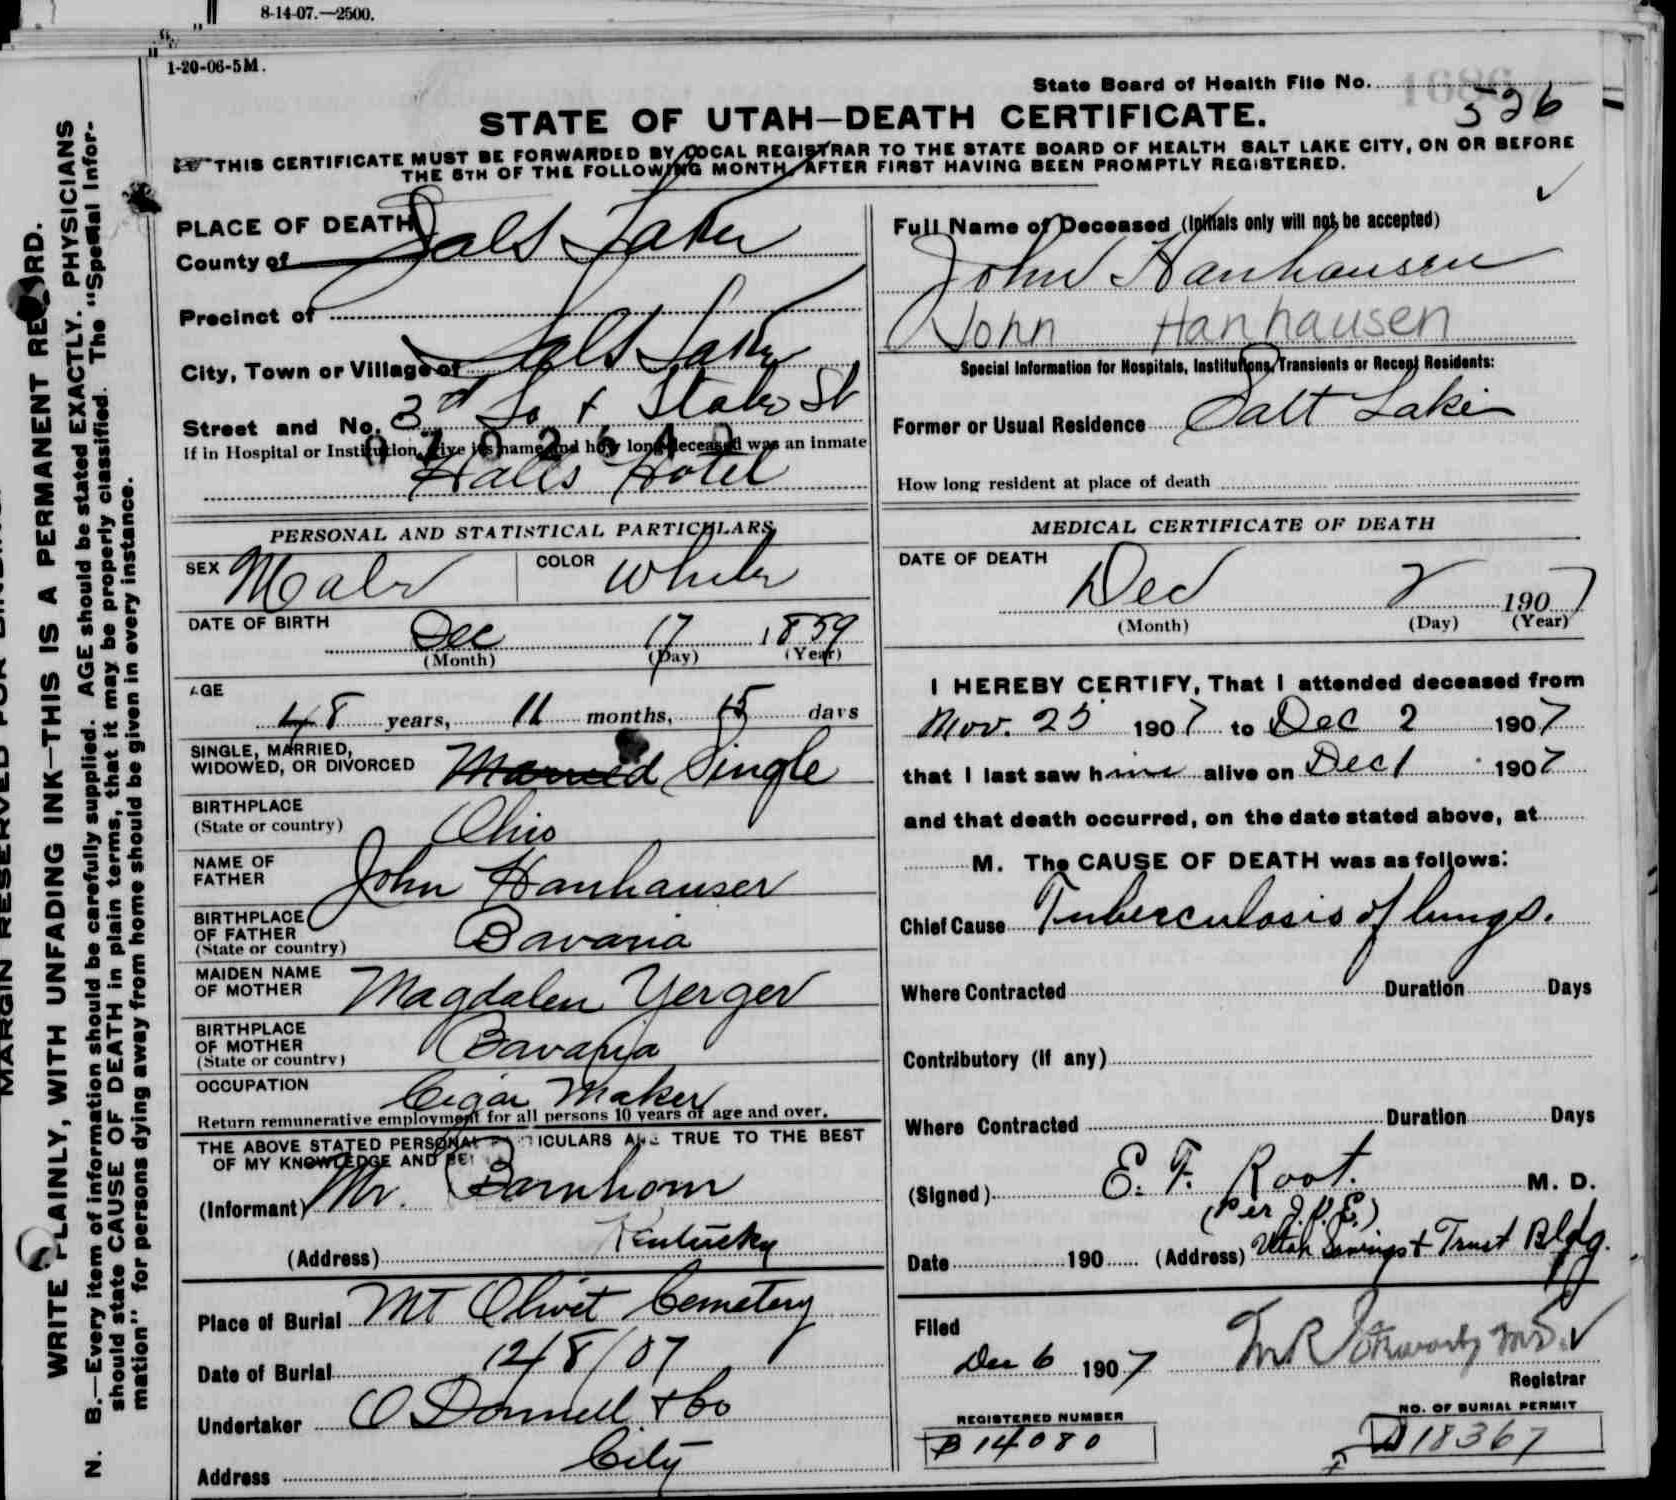 8-14-07.—2500.
1-20-06-5M.
State Board of Health File No. 526
STATE OF UTAH—DEATH CERTIFICATE.
THIS CERTIFICATE MUST BE FORWARDED BY LOCAL REGISTRAR TO THE STATE BOARD OF HEALTH SALT LAKE CITY, ON OR BEFORE
THE 5TH OF THE FOLLOWING MONTH, AFTER FIRST HAVING BEEN PROMPTLY REGISTERED.
PLACE OF DEATH
County of Salt Lake
Precinct of
City, Town or Village of Salt Lake
Street and No. 3rd So + State St
If in Hospital or Institution, give its name and how long deceased was an inmate
Halls Hotel
Full Name of Deceased (Initials only will not be accepted)
John Hanhausen
John Hanhausen
Special Information for Hospitals, Institutions, Transients or Recent Residents:
Former or Usual Residence Salt Lake
How long resident at place of death
PERSONAL AND STATISTICAL PARTICULARS
SEX Male COLOR White
DATE OF BIRTH Dec 17 1859
(Month) (Day) (Year)
AGE
48 years, 11 months, 15 days
SINGLE, MARRIED,
WIDOWED, OR DIVORCED Married Single
BIRTHPLACE
(State or country) Ohio
NAME OF
FATHER John Hanhauser
BIRTHPLACE
OF FATHER
(State or country) Bavaria
MAIDEN NAME
OF MOTHER Magdalen Yerger
BIRTHPLACE
OF MOTHER
(State or country) Bavaria
OCCUPATION Cigar Maker
Return remunerative employment for all persons 10 years of age and over.
THE ABOVE STATED PERSONAL PARTICULARS ARE TRUE TO THE BEST
OF MY KNOWLEDGE AND BE
(Informant) Mr. Barnhorn
(Address) Kentucky
Place of Burial Mt Olivet Cemetery
Date of Burial 12/8/07
Undertaker O Donnell + Co
Address City
MEDICAL CERTIFICATE OF DEATH
DATE OF DEATH
Dec 2 1907
(Month) (Day) (Year)
I HEREBY CERTIFY, That I attended deceased from
Nov. 25 1907 to Dec 2 1907
that I last saw him alive on Dec 1 1907
and that death occurred, on the date stated above, at
M. The CAUSE OF DEATH was as follows:
Chief Cause Tuberculosis of lungs.
Where Contracted Duration Days
Contributory (if any)
Where Contracted Duration Days
(Signed) E. F. Root. M. D.
(Per J.P.E.)
Date 190 (Address) Utah Savings + Trust Bldg.
Filed
Dec 6 1907
Registrar
REGISTERED NUMBER
B 14080
NO. OF BURIAL PERMIT
18367
WRITE PLAINLY, WITH UNFADING INK—THIS IS A PERMANENT RECORD.
N. B.—Every item of information should be carefully supplied. AGE should be stated EXACTLY. PHYSICIANS
should state CAUSE OF DEATH in plain terms, that it may be properly classified. The "Special Infor-
mation" for persons dying away from home should be given in every instance.